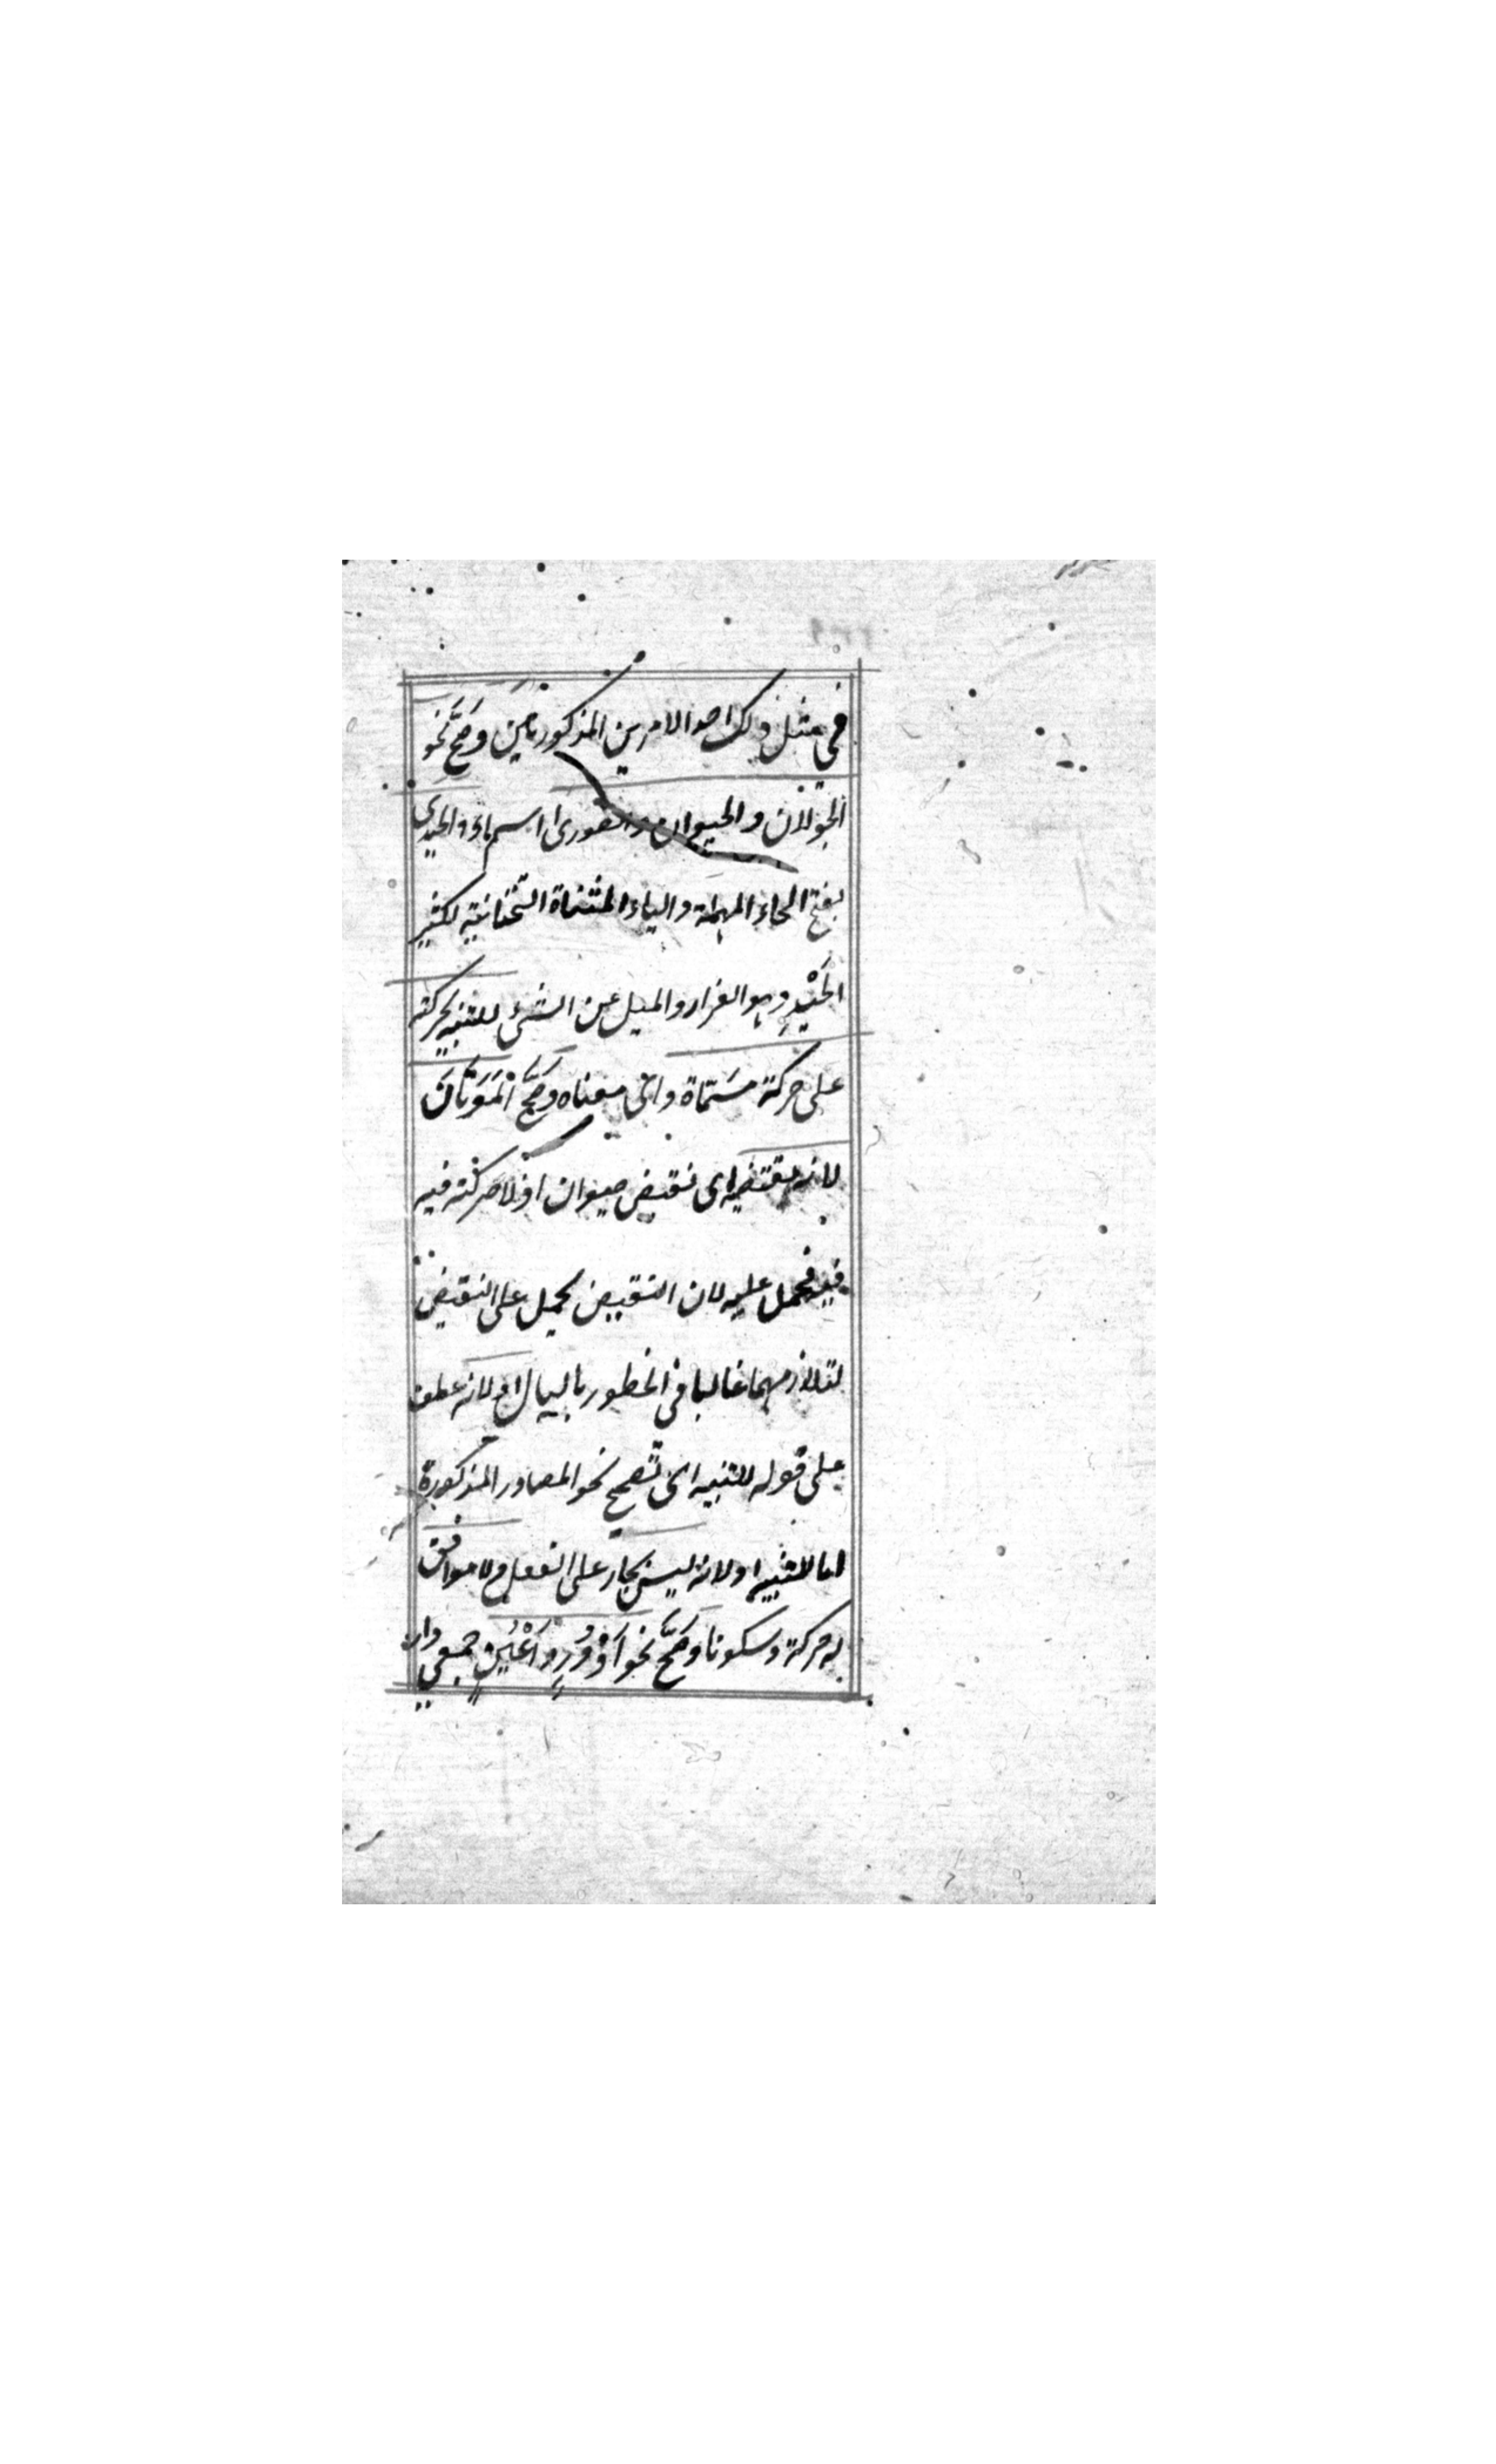 في مثل ذلك احد الامرين المذكورتامين وصَحَّ نَحْو
الجَوَلان والحيوان والصَّورى اسم ماء والحَيَدى
بفتح الحاء المهملة والياء المثناة التحتانية لكثير
الحَيْدِ وهو الفرار والميل عن الشئ للتنبيه بحركته
على حركة مسَمّاة واى معناه وصَحَّ المَوَتَانَ
لانه نقيضه اى نقيض حيوان اذ لا حركة فيه
فيه فحمل عليه لان النقيض يحمل على النقيض
لتلازمهما غالبا فى الخطور بالبال او لانه عطف
على قوله للتنبيه اى تصحيح نحو المصادر المذكورة
اما للتنبيه او لانه ليس بجار على الفعل ولا موافق
له حركة وسكونا وصَحَّ نحو اَدْوُرٍ واَعْيُنٍ جمعي دار